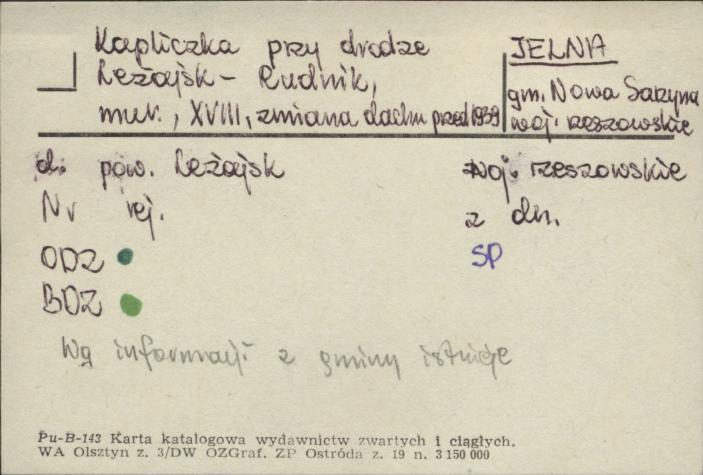 Kapliczka przy drodze
Leżajsk - Rudnik,
mur., XVIII, zmiana dachu przed 1939
JELNA
gm. Nowa Sarzyna
woj. rzeszowskie
d. pow. Leżajsk
woj. rzeszowskie
Nr rej.
z dn.
ODZ
SP
BDZ
Wg informacji z gminy istnieje
Pu-B-143 Karta katalogowa wydawnictw zwartych i ciągłych.
WA Olsztyn z. 3/DW OZGraf. ZP Ostróda z. 19 n. 3 150 000